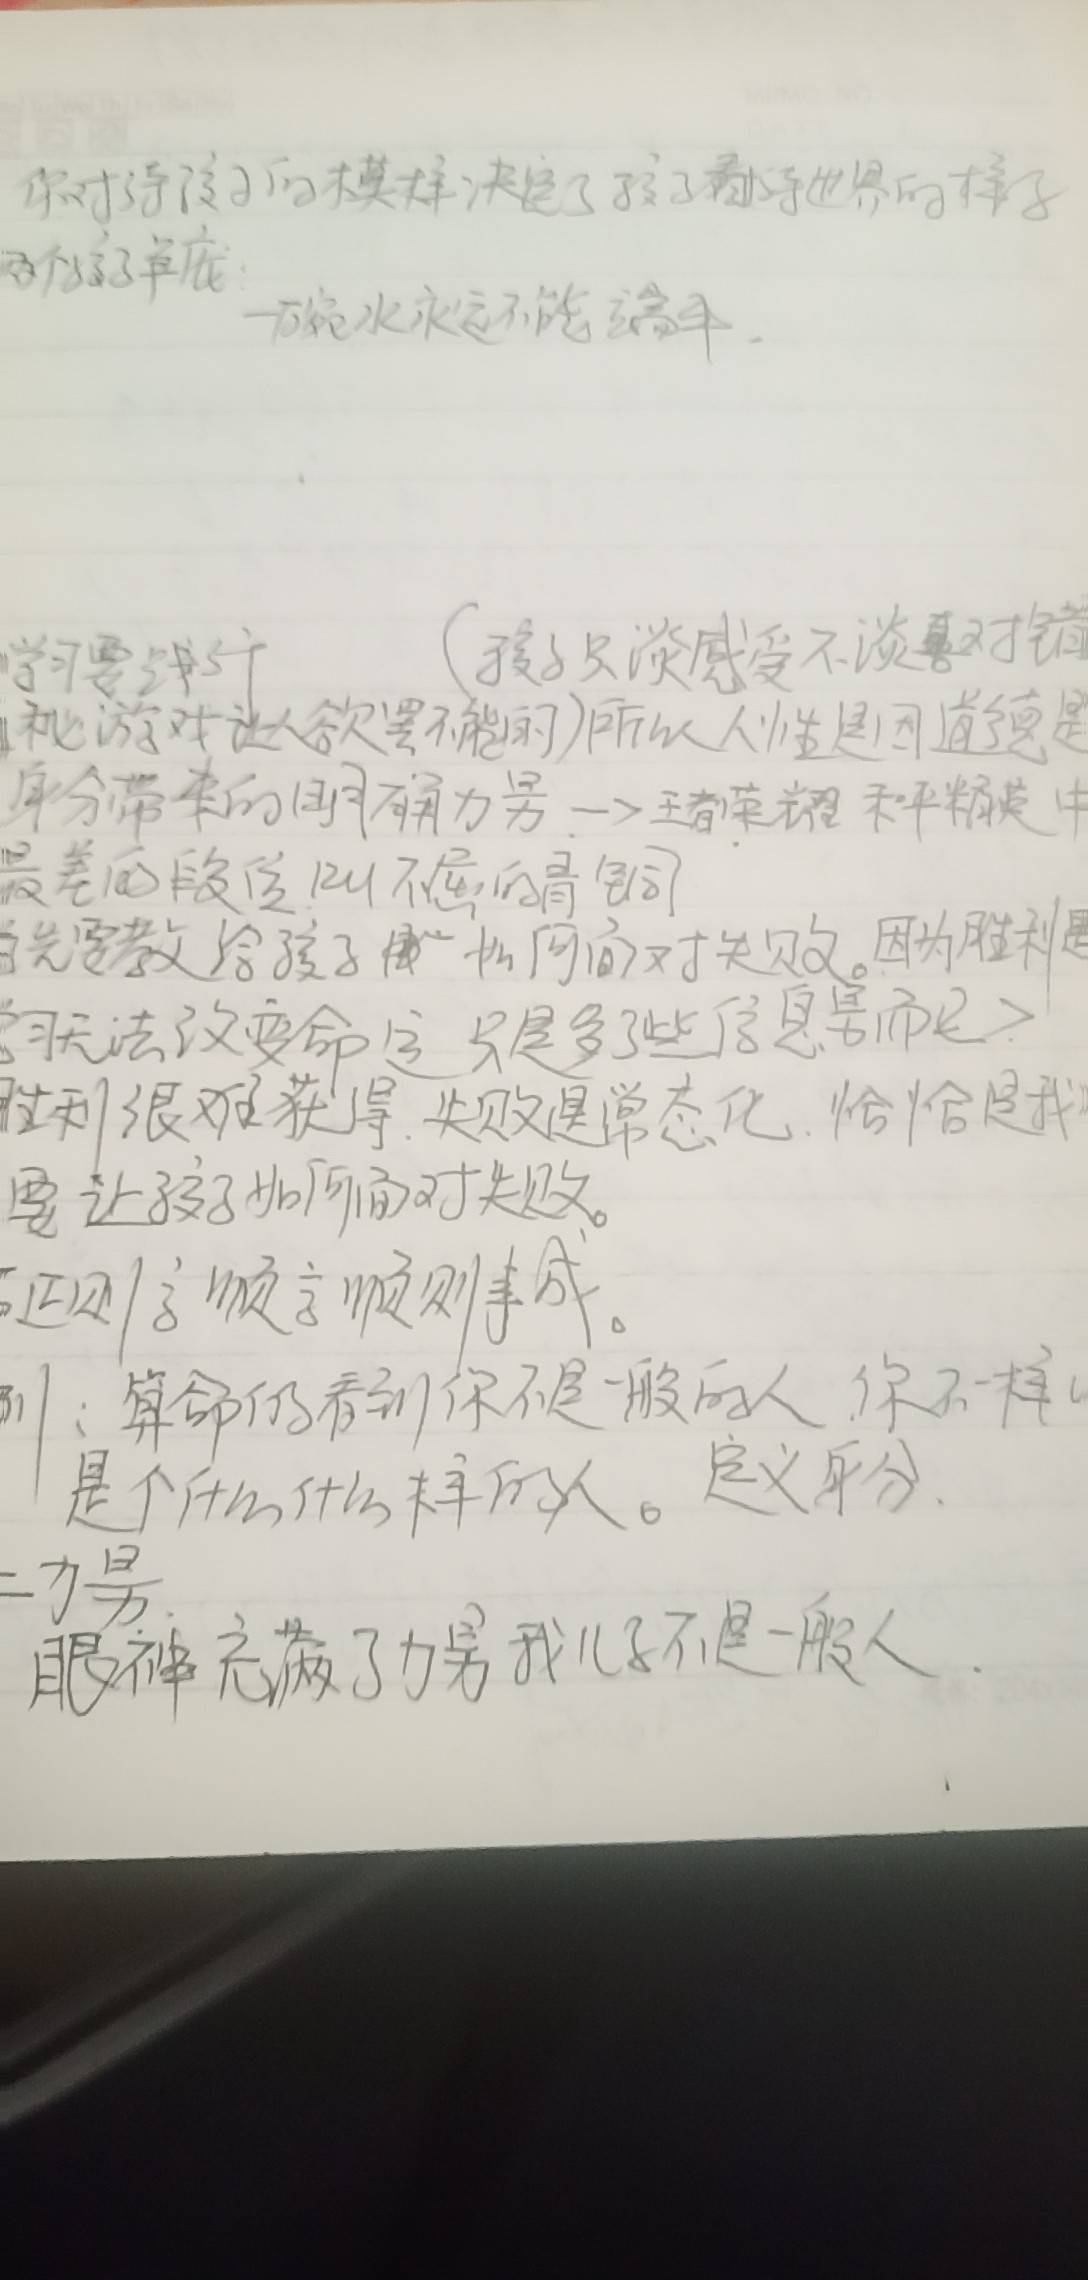 你对待孩子的模样决定了孩子看待世界的样子
两个孩子单底:
一碗水永远不能端平.
学习要设计 (孩子只谈感受不谈对错
游戏让人欲罢不能的)所以人性是因道德是
身分带来的明确力量→王者荣耀 和平精英 中
最差的段位叫不屈的青铜
先要教给孩子 如何面对失败。因为胜利是
学习无法改变命运 只是多了些信息量而已>
胜利很难获得.失败是常态化.恰恰是我
要让孩子如何面对失败。
正则言顺言顺则事成。
例:算命的看到你不是一般的人.你不一样
是个什么什么样的人。定义身分.
二力量.
眼神充满了力量我儿子不是一般人.